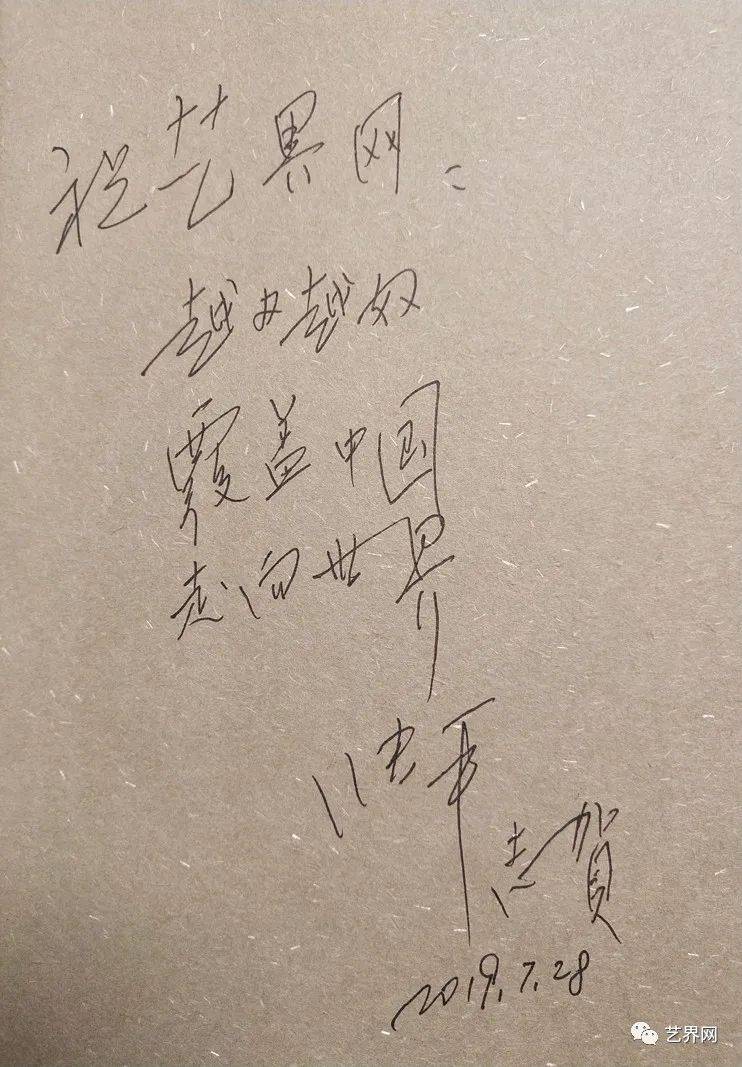 祝艺界网：
越办越好
覆盖中国
走向世界
志贺
2019.7.28
艺界网